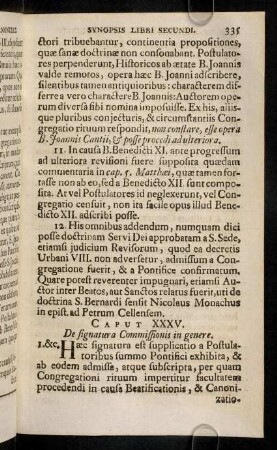 SYNOPSIS LIBRI SECUNDI. 335
ctori tribuebantur, continentia propositiones,
quæ sanæ doctrinæ non consonabant. Postulato-
res perpenderunt, Historicos ab ætate B. Joannis
valde remotos, opera hæc B. Joanni adscribere,
silentibus tamen antiquioribus: characterem dif-
ferre a vero charactere B. Joannis: Auctorem ope-
rum diversa sibi nomina imposuisse. Ex his, aliis-
que pluribus conjecturis, & circumstantiis Con-
gregatio rituum respondit, non constare, esse opera
B. Joannis Cantii, & posse procedi ad ulteriora.
11. In causa B. Benedicti XI. ante progressum
ad ulteriora revisioni fuere supposita quædam
commentaria in cap. 5. Matthæi, quæ tamen for-
tasse non ab eo, sed a Benedicto XII. sunt compo-
sita. At vel Postulatores id neglexerunt, vel Con-
gregatio censuit, non ita facile opus illud Bene-
dicto XII. adscribi posse.
12. His omnibus addendum, nunquam dici
posse doctrinam Servi Dei approbatam a S. Sede,
etiamsi judicium Ravisorum, quod ea decretis
Urbani VIII. non adversetur, admissum a Con-
gregatione fuerit, & a Pontifice confirmatum.
Quare potest reverenter impugnari, etiamsi Au-
ctor inter Beatos, aut Sanctos relatus fuerit, uti de
doctrina S. Bernardi sensit Nicolaus Monachus
in epist. ad Petrum Cellensem.
CAPUT XXXV.
De signatura Commissionis in genere.
1. &c. Hæc signatura est supplicatio a Postula-
toribus summo Pontifici exhibita, &
ab eodem admissa, atque subscripta, per quam
Congregationi rituum impertitur facultatem
procedendi in causa Beatificationis, & Canoni-
zatio-